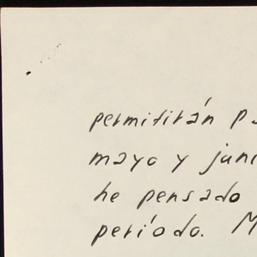 permitirán p
mayo y juni
he pensado
período. M